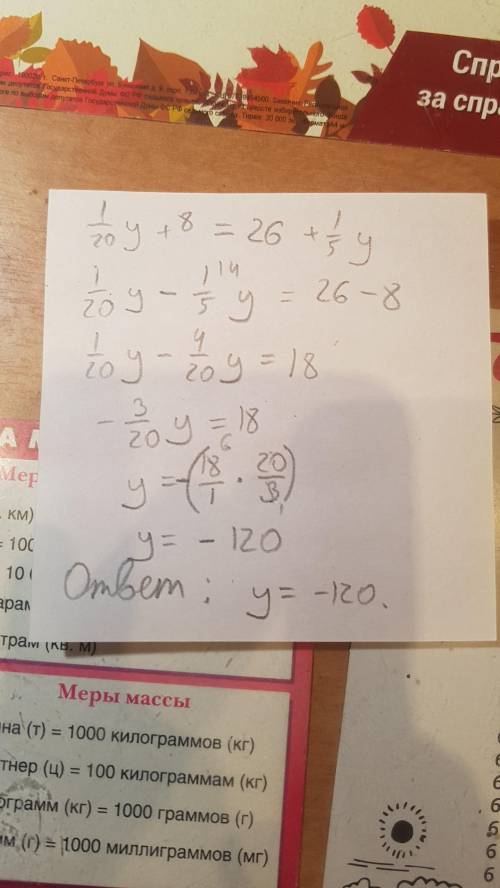 Санкт-Петербург
Спр
за спра
1/20 y + 8 = 26 + 1/5 y
1/20 y - 1/5 |4 y = 26 - 8
1/20 y - 4/20 y = 18
- 3/20 y = 18
y = -(18 6/1 · 20/3 1)
y = - 120
Ответ: y = -120.
А М
Мер
. км)
= 100
10
арам
трам (кв. м)
Меры массы
на (т) = 1000 килограммов (кг)
тнер (ц) = 100 килограммам (кг)
ограмм (кг) = 1000 граммов (г)
мм (г) = 1000 миллиграммов (мг)
6
6
6
6
5
6
6